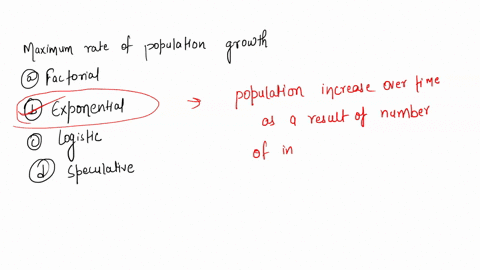 Maximum rate of population growth
(a) Factorial
(b) Exponential
(c) Logistic
(d) Speculative
→ population increase over time
as a result of number
of in